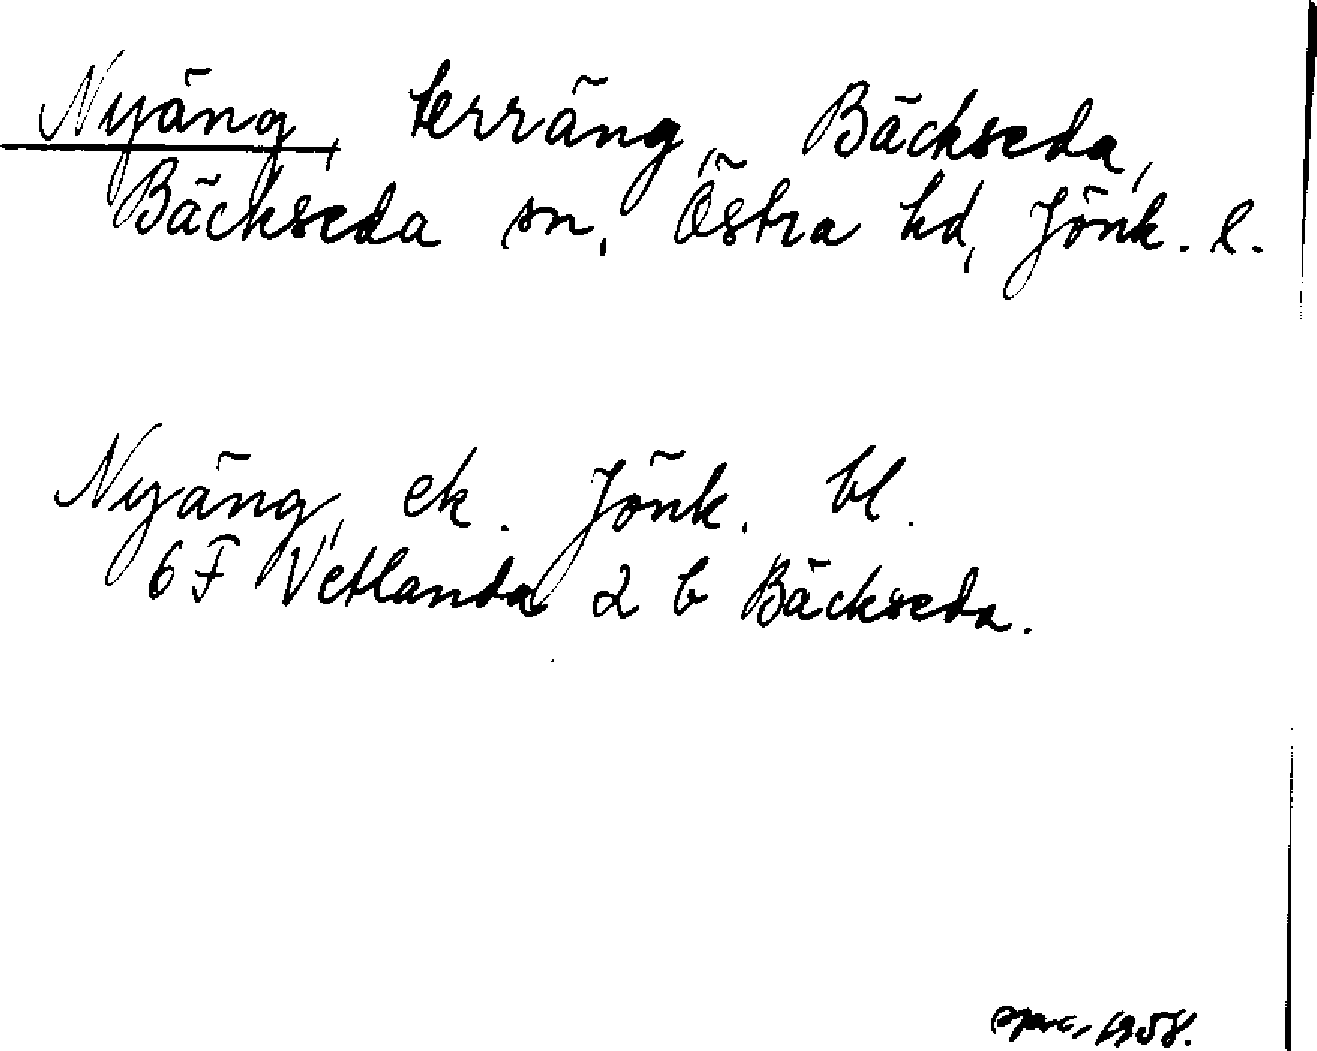 Nyäng, terräng, Bäckseda,
Bäckseda sn, Östra hd, Jönk. l.
Nyäng, ek. Jönk. bl.
6 F Vetlanda 2 b Bäckseda.
1958.